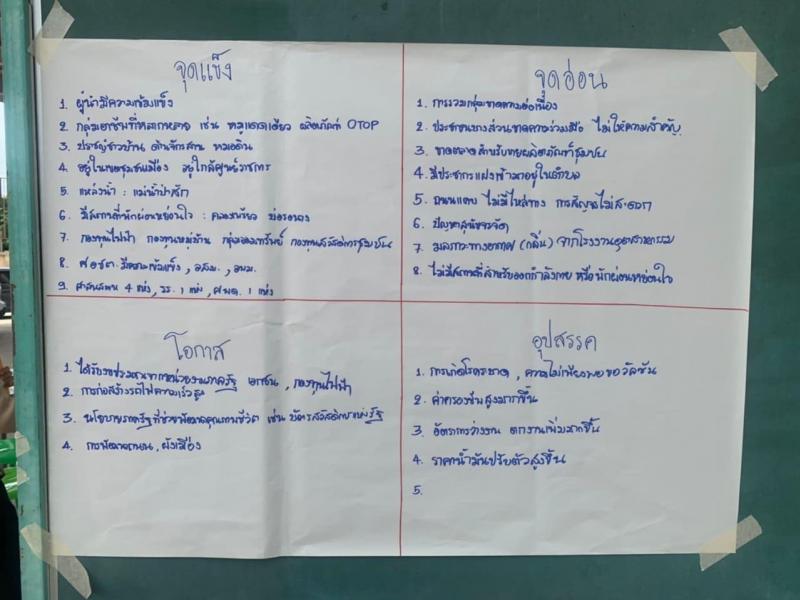 จุดแข็ง
1. ผู้นำมีความเข้มแข็ง
2. กลุ่มอาชีพที่หลากหลาย เช่น หมูแดดเดียว ผลิตภัณฑ์ OTOP
3. ปราชญ์ชาวบ้าน ด้านจักรสาน หมอดิน
4. อยู่ในเขตชุมชนเมือง อยู่ใกล้ศูนย์ราชการ
5. แหล่งน้ำ : แม่น้ำป่าสัก
6. มีสถานที่พักผ่อนหย่อนใจ : คลองเพรียว
7. กองทุนไฟฟ้า กองทุนหมู่บ้าน กลุ่มออมทรัพย์ กองทุนสวัสดิการชุมชน
8. มีความเข้มแข็ง, อสม., อพม.
9. ศาสนสถาน 4 แห่ง, รร. 1 แห่ง, ศพด. 1 แห่ง
จุดอ่อน
1. การรวมกลุ่มขาดความต่อเนื่อง
2. ประชาชนบางส่วนขาดความร่วมมือ ไม่ให้ความสำคัญ
3. ขาดตลาดสำหรับขายผลิตภัณฑ์ชุมชน
4. มีประชากรแฝงเข้ามาอยู่ในตำบล
5. ถนนแคบ ไม่มีไหล่ทาง การสัญจรไม่สะดวก
6. ปัญหาสุนัขจรจัด
7. มลภาวะทางอากาศ (กลิ่น) จากโรงงานอุตสาหกรรม
8. ไม่มีสถานที่สำหรับออกกำลังกาย หรือพักผ่อนหย่อนใจ
โอกาส
1. ได้รับงบประมาณจากหน่วยงานภาครัฐ เอกชน, กองทุนไฟฟ้า
2. การก่อสร้างรถไฟความเร็วสูง
3. นโยบายภาครัฐที่ช่วยพัฒนาคุณภาพชีวิต เช่น บัตรสวัสดิการแห่งรัฐ
4. การพัฒนาถนน, ผังเมือง
อุปสรรค
1. การเกิดโรคระบาด, ความไม่เพียงพอของวัคซีน
2. ค่าครองชีพสูงมากขึ้น
3. อัตราการว่างงาน ตกงานเพิ่มมากขึ้น
4. ราคาน้ำมันปรับตัวสูงขึ้น
5.